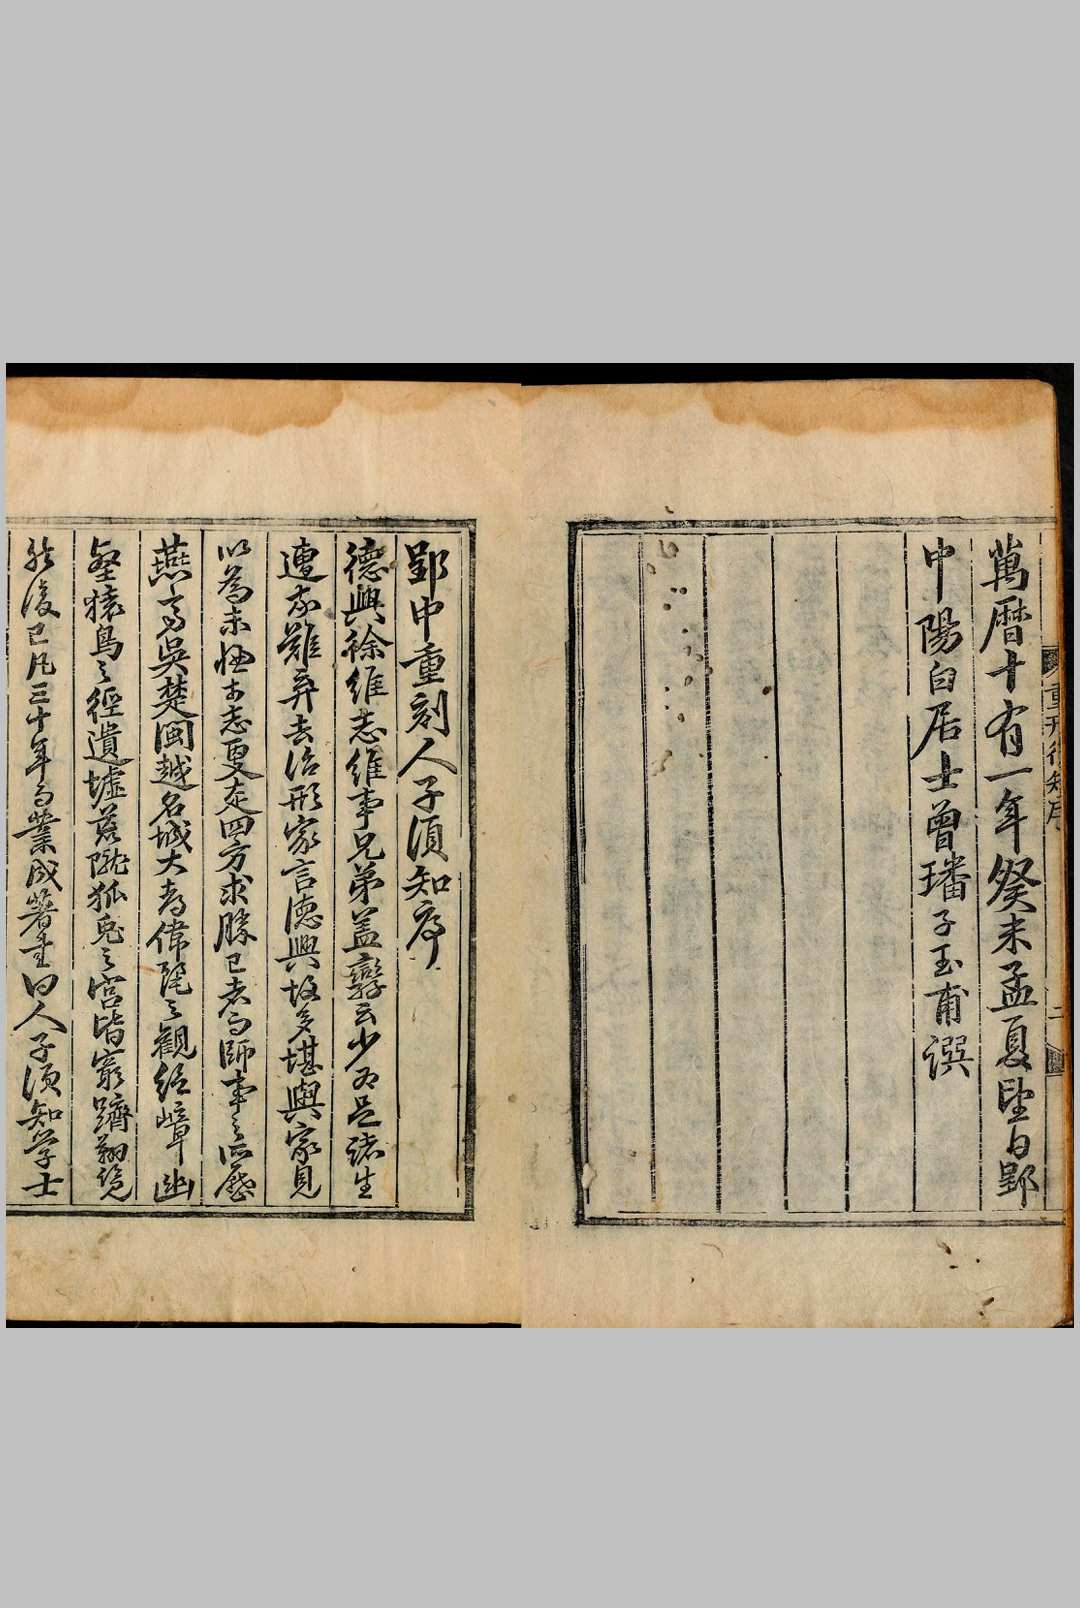 萬曆十有一年癸未孟夏望日郢
中陽白居士曾璠子玉甫譔
重刊 須知序
二
郢中重刻人子須知序
德興徐維志維事兄弟蓋孿云少為邑諸生
遭家難弃去治形家言德興故多堪輿家見
以為未極其志更走四方求勝己者而師事之所歷
燕齊吳楚閩越名城大都偉麗之觀絕嶂幽
壑猿鳥之徑遺墟荒隴狐兔之宮皆窮躋翱覽
然後已凡三十年而業成著書曰人子須知學士